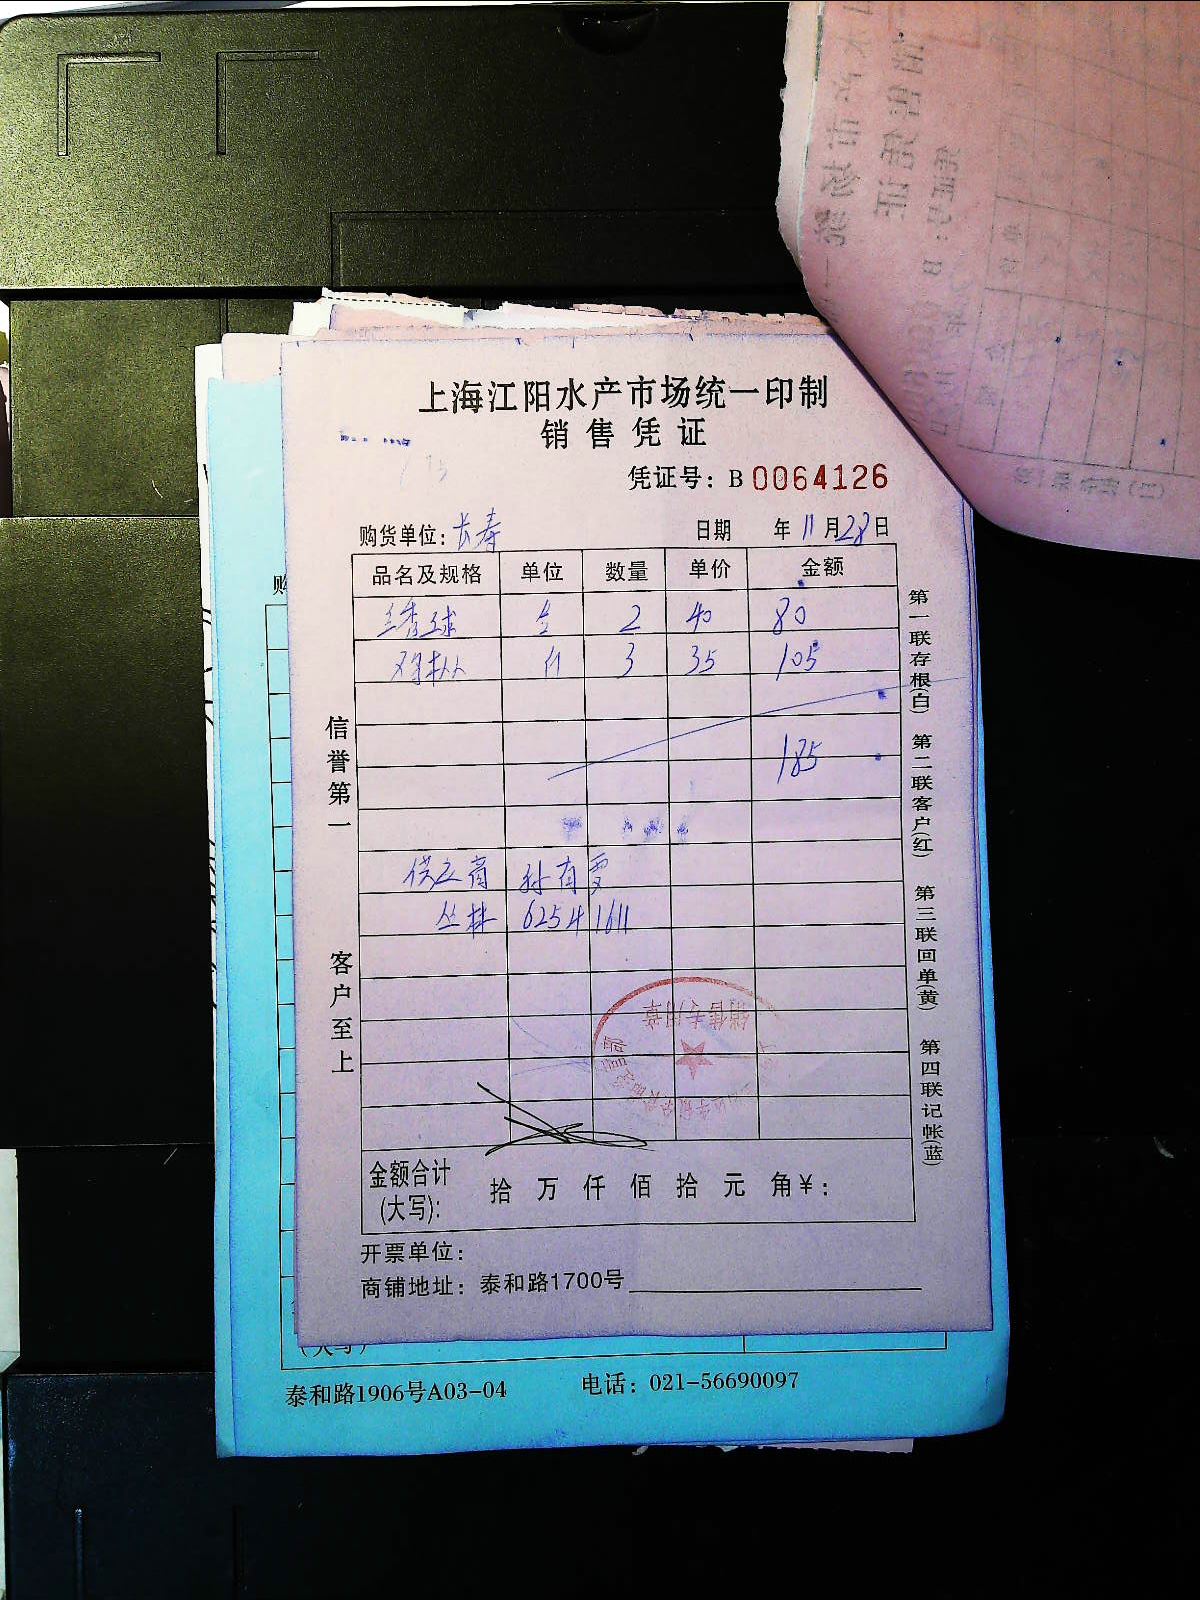 上海江阳水产市场统一印制
销售凭证
凭证号：B 0064126
购货单位：长寿 日期 年 11 月 28 日
品名及规格 单位 数量 单价 金额
绣球 2 40 80
3 35 105
185
供应商 孙有
丛林 62541611
金额合计(大写)： 拾 万 仟 佰 拾 元 角 ¥：
开票单位：
商铺地址：泰和路1700号
信誉第一
客户至上
第一联存根(白) 第二联客户(红) 第三联回单(黄) 第四联记帐(蓝)
销售专用章
购
(大写)
泰和路1906号A03-04 电话：021-56690097